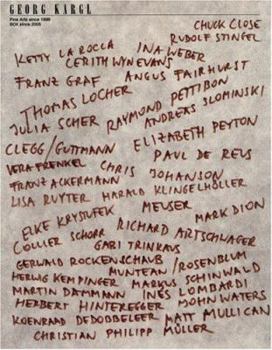 GEORG KARGL
Fine Arts since 1998
BOX since 2005
CHUCK CLOSE
RUDOLF STINGEL
KETTY LA ROCCA INA WEBER
CERITH WYN EVANS
FRANZ GRAF ANGUS FAIRHURST
THOMAS LOCHER RAYMOND PETTIBON
JULIA SCHER ANDREAS SLOMINSKI
CLEGG/GUTTMANN ELIZABETH PEYTON
VERA FRENKEL CHRIS JOHANSON PAUL DE REUS
FRANZ ACKERMANN
LISA RUYTER HARALD KLINGELHÖLLER
ELKE KRYSTUFEK MEUSER MARK DION
COLLIER SCHORR RICHARD ARTSCHLAGER
GABI TRINKAUS
GERWALD ROCKENSCHAUB
MUNTEAN/ROSENBLUM
HERWIG KEMPINGER MARKUS SCHINWALD
MARTIN DAMMANN INES LOMBARDI
HERBERT HINTEREGGER JOHN WATERS
KOENRAAD DEDOBBELEER MATT MULLICAN
CHRISTIAN PHILIPP MÜLLER